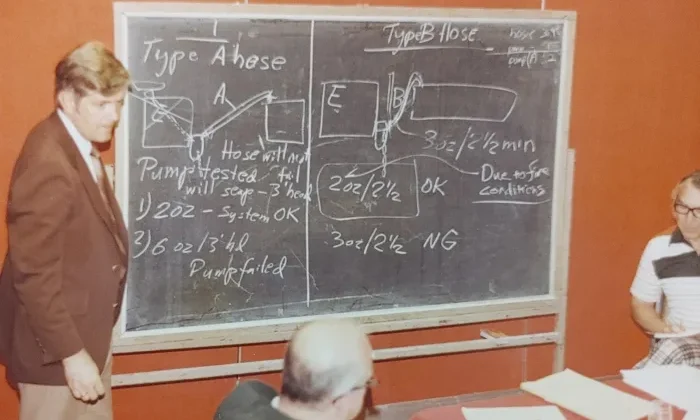 Type A hose
A
Hose will not
fail
Pump tested
will seap - 3' head
1) 2 oz - System OK
2) 6 oz/3' hd
Pump failed
Type B Hose
hose
E
B
3 oz/2 1/2 min
2 oz/2 1/2 OK
Due to fire
conditions
3 oz/2 1/2 NG